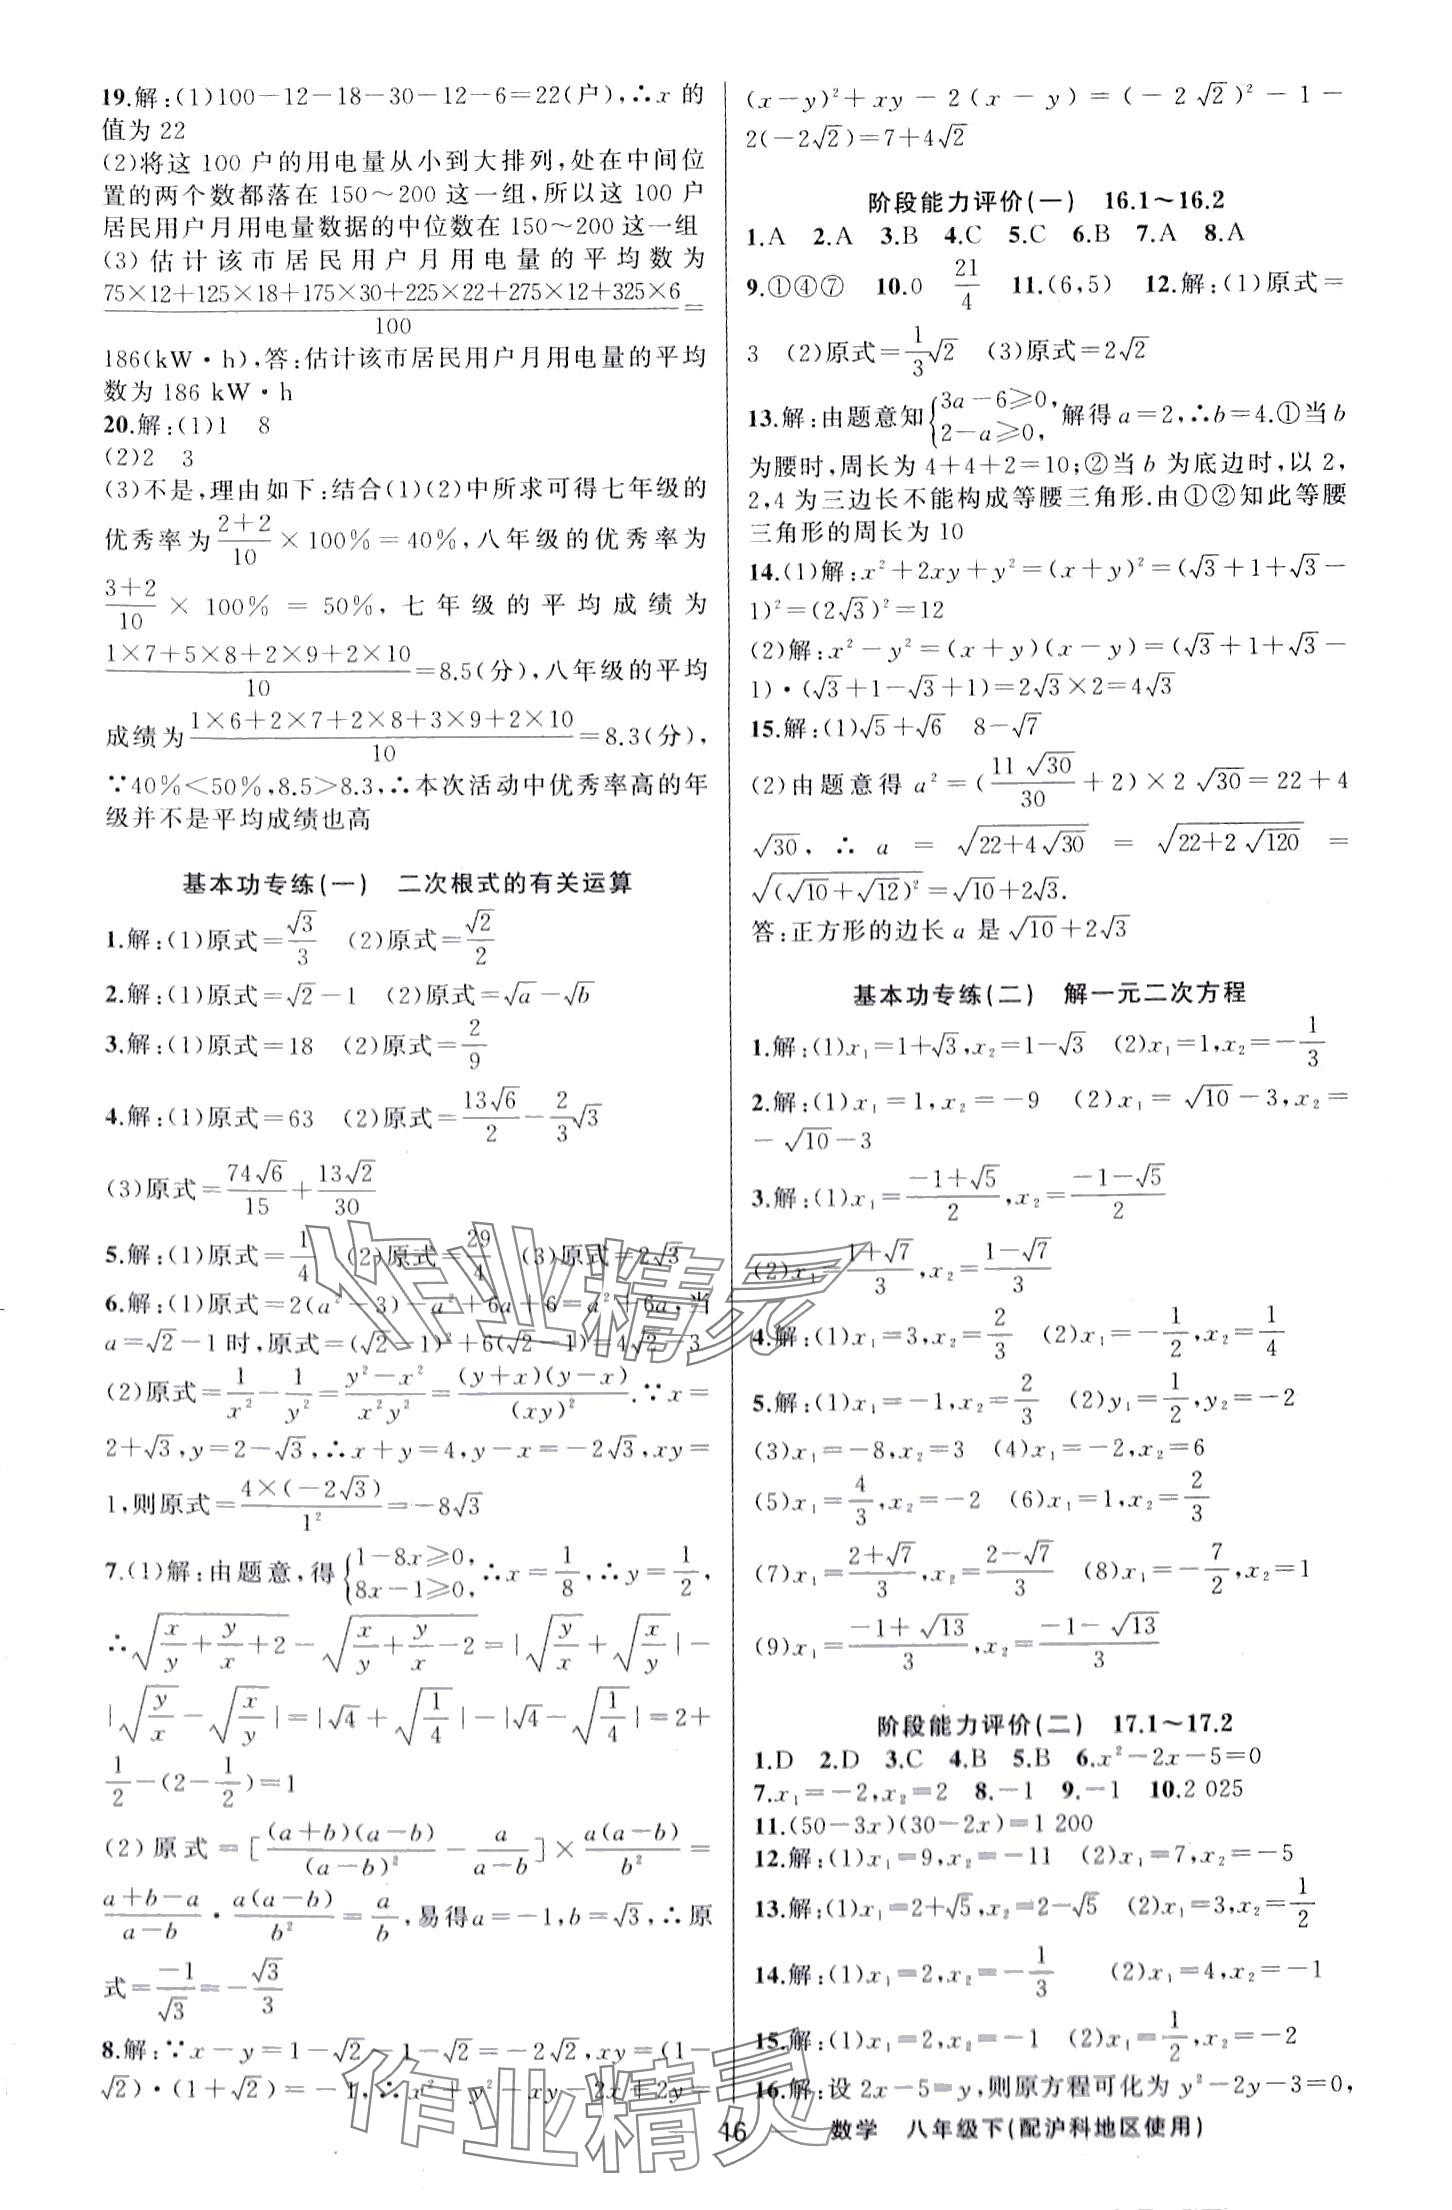 19.解:(1)100-12-18-30-12-6=22(户),∴x 的
值为 22
(2)将这 100 户的用电量从小到大排列,处在中间位
置的两个数都落在 150～200 这一组,所以这 100 户
居民用户月用电量数据的中位数在 150～200 这一组
(3)估计该市居民用户月用电量的平均数为
(75×12+125×18+175×30+225×22+275×12+325×6)/100=
186(kW·h),答:估计该市居民用户月用电量的平均
数为 186 kW·h
20.解:(1)1 8
(2)2 3
(3)不是,理由如下:结合(1)(2)中所求可得七年级的
优秀率为(2+2)/10×100%=40%,八年级的优秀率为
(3+2)/10×100%=50%,七年级的平均成绩为
(1×7+5×8+2×9+2×10)/10=8.5(分),八年级的平均
成绩为(1×6+2×7+2×8+3×9+2×10)/10=8.3(分),
∵40%<50%,8.5>8.3,∴本次活动中优秀率高的年
级并不是平均成绩也高
基本功专练(一) 二次根式的有关运算
1.解:(1)原式=√3/3 (2)原式=√2/2
2.解:(1)原式=√2-1 (2)原式=√a-√b
3.解:(1)原式=18 (2)原式=2/9
4.解:(1)原式=63 (2)原式=13√6/2-2/3√3
(3)原式=74√6/15+13√2/30
5.解:(1)原式=1/4 (2)原式=29/4 (3)原式=2√3
6.解:(1)原式=2(a²-3)-a²+6a+6=a²+6a,当
a=√2-1时,原式=(√2-1)²+6(√2-1)=4√2-3
(2)原式=1/x²-1/y²=(y²-x²)/x²y²=(y+x)(y-x)/(xy)².∵x=
2+√3,y=2-√3,∴x+y=4,y-x=-2√3,xy=
1,则原式=4×(-2√3)/1²=-8√3
7.(1)解:由题意,得{1-8x≥0, 8x-1≥0,∴x=1/8,∴y=1/2,
∴√(x/y+y/x+2)-√(x/y+y/x-2)=|√(y/x)+√(x/y)|-
|√(y/x)-√(x/y)|=|√4+√(1/4)|-|√4-√(1/4)|=2+
1/2-(2-1/2)=1
(2)原式=[(a+b)(a-b)/(a-b)²-a/(a-b)]×a(a-b)/b²=
(a+b-a)/(a-b)·a(a-b)/b²=a/b,易得a=-1,b=√3,∴原
式=-1/√3=-√3/3
8.解:∵x-y=1-√2-1-√2=-2√2,xy=(1-
√2)·(1+√2)=-1,∴x²+y²-xy-2x+2y=
(x-y)²+xy-2(x-y)=(-2√2)²-1-
2(-2√2)=7+4√2
阶段能力评价(一) 16.1～16.2
1.A 2.A 3.B 4.C 5.C 6.B 7.A 8.A
9.①④⑦ 10.0 21/4 11.(6,5) 12.解:(1)原式=
3 (2)原式=1/3√2 (3)原式=2√2
13.解:由题意知{3a-6≥0, 2-a≥0,解得a=2,∴b=4.①当b
为腰时,周长为4+4+2=10;②当b为底边时,以2,
2,4为三边长不能构成等腰三角形.由①②知此等腰
三角形的周长为10
14.(1)解:x²+2xy+y²=(x+y)²=(√3+1+√3-
1)²=(2√3)²=12
(2)解:x²-y²=(x+y)(x-y)=(√3+1+√3-
1)·(√3+1-√3+1)=2√3×2=4√3
15.解:(1)√5+√6 8-√7
(2)由题意得 a²=(11√30/30+2)×2√30=22+4
√30,∴a=√(22+4√30)=√(22+2√120)=
√((√10+√12)²)=√10+2√3.
答:正方形的边长a是√10+2√3
基本功专练(二) 解一元二次方程
1.解:(1)x₁=1+√3,x₂=1-√3 (2)x₁=1,x₂=-1/3
2.解:(1)x₁=1,x₂=-9 (2)x₁=√10-3,x₂=
-√10-3
3.解:(1)x₁=(-1+√5)/2,x₂=(-1-√5)/2
(2)x₁=(1+√7)/3,x₂=(1-√7)/3
4.解:(1)x₁=3,x₂=2/3 (2)x₁=-1/2,x₂=1/4
5.解:(1)x₁=-1,x₂=2/3 (2)y₁=1/2,y₂=-2
(3)x₁=-8,x₂=3 (4)x₁=-2,x₂=6
(5)x₁=4/3,x₂=-2 (6)x₁=1,x₂=2/3
(7)x₁=(2+√7)/3,x₂=(2-√7)/3 (8)x₁=-7/2,x₂=1
(9)x₁=(-1+√13)/3,x₂=(-1-√13)/3
阶段能力评价(二) 17.1～17.2
1.D 2.D 3.C 4.B 5.B 6.x²-2x-5=0
7.x₁=-2,x₂=2 8.-1 9.-1 10.2 025
11.(50-3x)(30-2x)=1 200
12.解:(1)x₁=9,x₂=-11 (2)x₁=7,x₂=-5
13.解:(1)x₁=2+√5,x₂=2-√5 (2)x₁=3,x₂=1/2
14.解:(1)x₁=2,x₂=-1/3 (2)x₁=4,x₂=-1
15.解:(1)x₁=2,x₂=-1 (2)x₁=1/2,x₂=-2
16.解:设2x-5=y,则原方程可化为y²-2y-3=0,
46 数学 八年级下(配沪科地区使用)
作业精灵
作业精灵